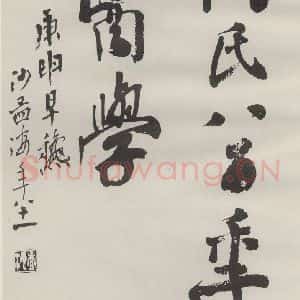 氏八百年
學
庚申早穐
沙孟海年八十一
Shufawang.CN